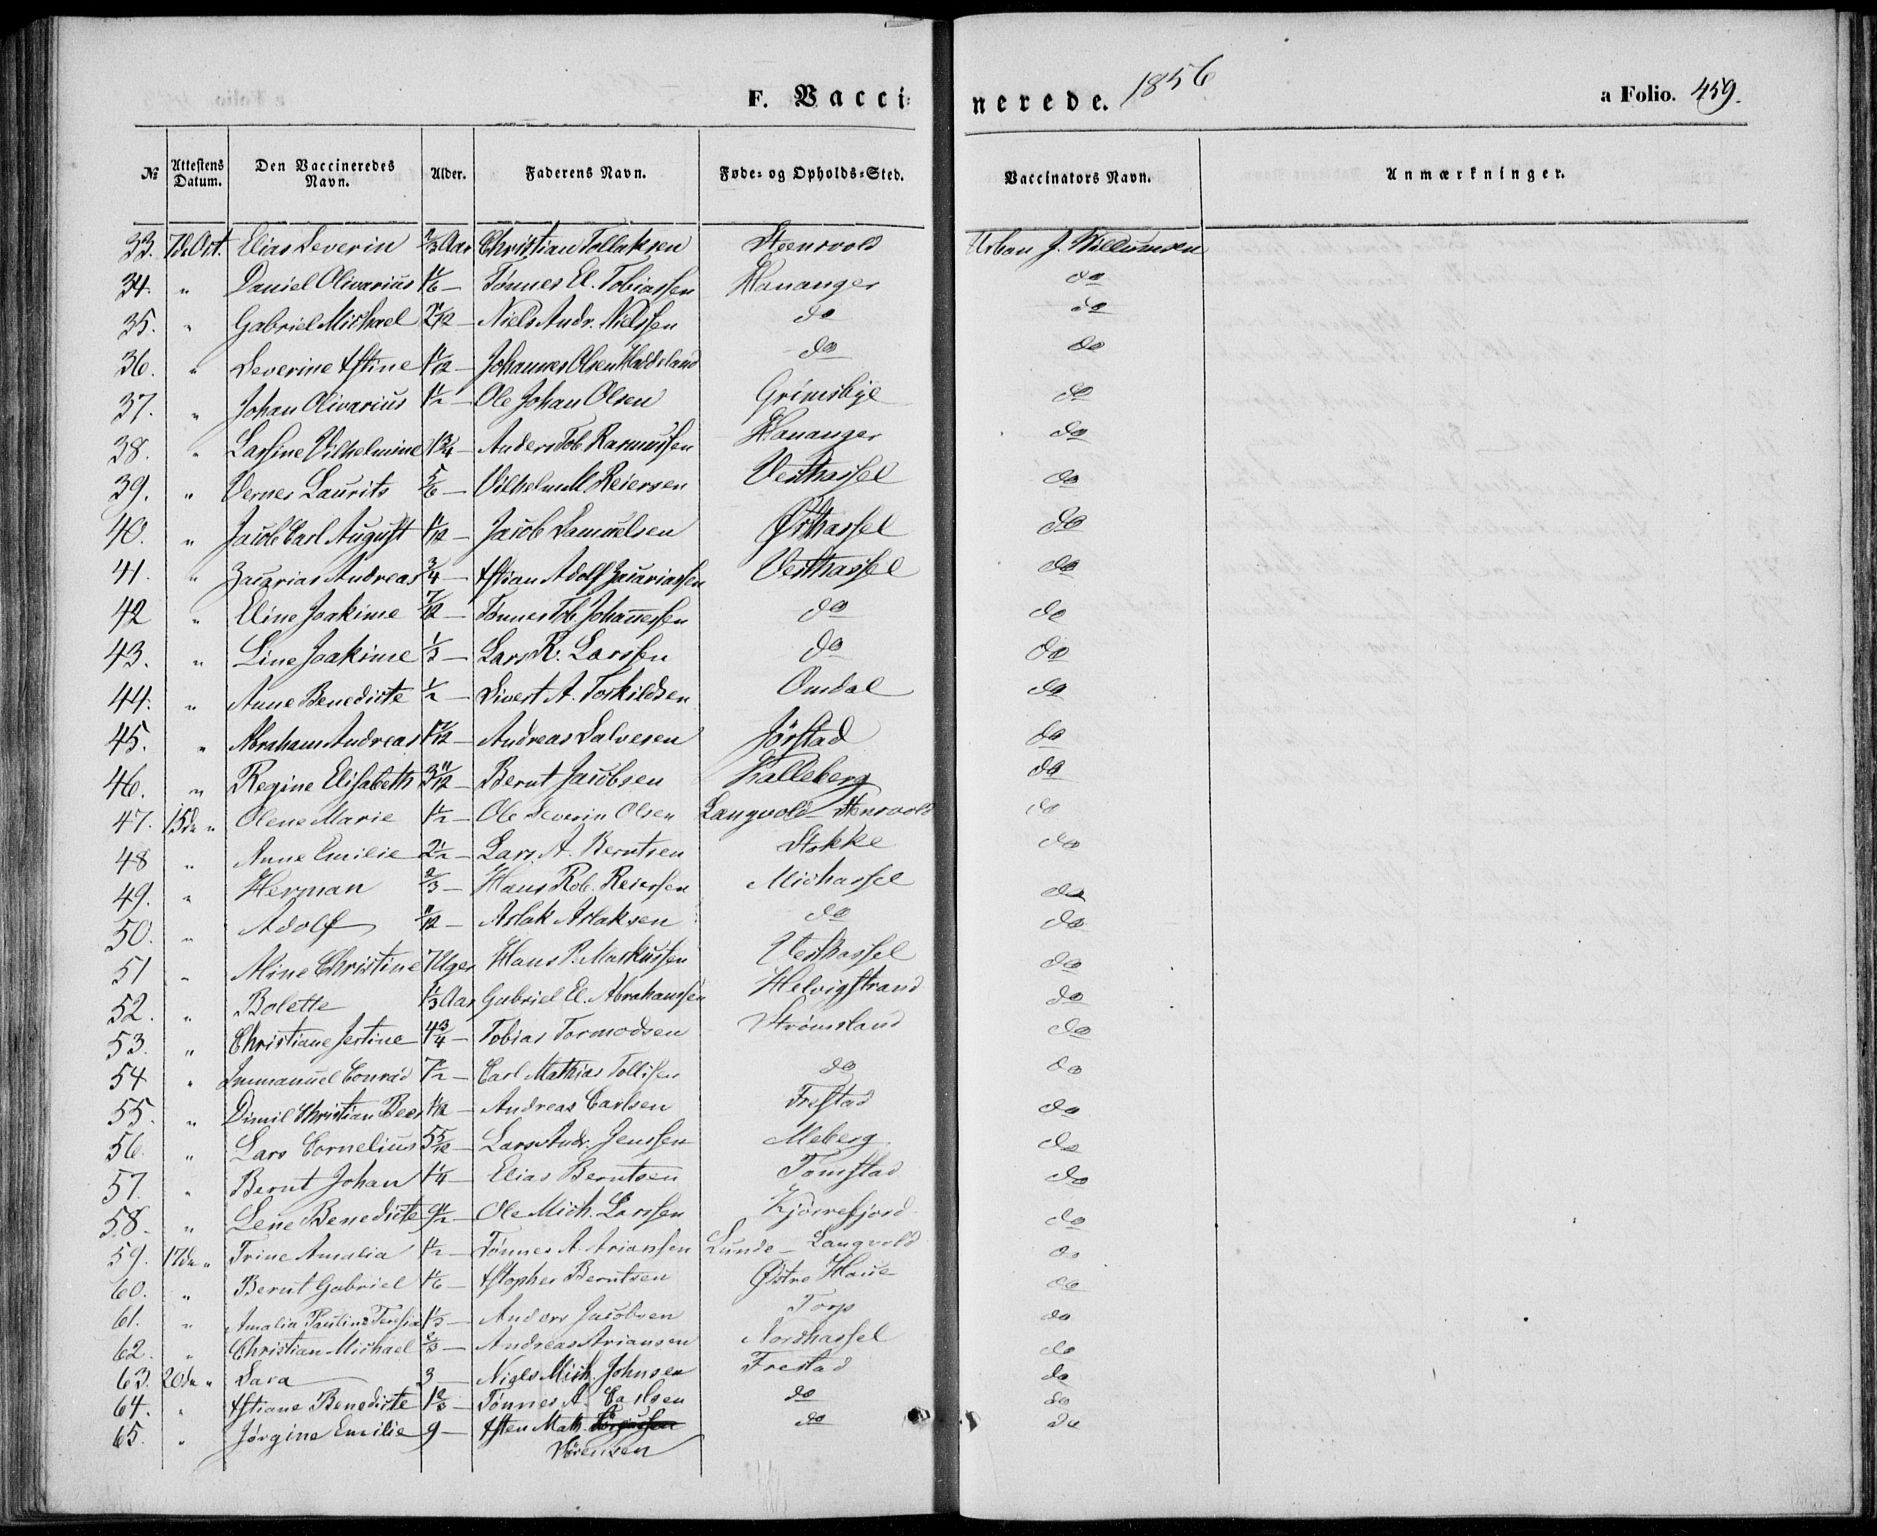 F. Vacci-nerede. 1856 a Folio. 459.
№ Attestens Datum. Den Vaccineredes Navn. Alder. Faderens Navn. Føde- og Opholds-Sted. Vaccinators Navn. Anmærkninger.
33. 7de Oct. Elias Severin 2/3 Aar Christian Tollaksen Steensvold Urban J. Willumsen
34. " Daniel Olivarius 1 1/6 — Tønnes El. Tobiassen Hananger do
35. " Gabriel Michael Niels Andr. Nielssen do do
36. " Severine Xstine Johannes Olsen Haddeland do do
37. " Johan Olivarius 1 1/2 — Ole Johan Olsen Grimsbye do
38. " Lassine Vilhelmine 1 3/4 — Anders Tob. Rasmussen Hananger do
39. " Verner Laurits 5/6 — Vilhelm M. Reiersen Vesthassel do
40. " Jacob Carl August Jacob Samuelsen Østhassel do
41. " Zacarias Andreas 3/4 — Xstian Adolf Zacariassen Vesthassel do
42 " Eline Joakime 7/12 — Tønnes Tob. Johannessen do do
43. " Line Joakime 1/3 — Lars R. Larssen do do
44. " Anne Benedicte 1/2 — Sivert A. Torkildsen Omdal do
45. " Abraham Andreas Andreas Salvesen Jørstad do
46. " Regine Elisabeth 3 11/12 — Bernt Jacobsen Kalleberg do
47. 15de " Olene Marie 1 1/2 — Ole Severin Olsen Langvold — Stensvold do
48 " Anne Emilie 2 1/2 — Lars A. Berntsen Stokke do
49. " Herman 2/3 — Hans Rob. Reierssen Midhassel do
50. " Adolf 11/12 — Aslak Aslaksen do do
51 " Mine Christine 7 Uger Hans P. Markussen Vesthassel do
52. " Bolette 1/3 Aar Gabriel El. Abrahamsen Helvigstrand do
53. " Christiane Jestine 4 3/4 — Tobias Tormodsen Strømsland do
54 " Immanuel Conrad 7 1/2 — Carl Mathias Tollisen do do
55. " Christian Andreas Carlsen Frestad do
56. " Lars Cornelius 5 5/12 — Lars Andr. Jenssen Meberg do
57. " Bernt Johan 1 1/4 — Elias Berntsen Tomstad do
58. " Lene Benedicte 9 1/2 — Ole Mich. Larssen Kjørrefjord do
59. 17de " Trine Amalia 1 1/2 — Tønnes A. Arianssen Lunde — Langvold do
60. " Bernt Gabriel 1 1/6 — Xstopher Berntsen Østre Haue do
61. " Amalia Pauline 1 1/3 — Anders Jacobsen Torp do
62. " Christian Michael 2/3 — Andreas Ariansen Nordhassel do
63. 20de " Sara 3 — Niels Mich. Johnsen Frestad do
64. " Xstiane Benedicte 1 2/3 — Tønnes A. Carlsen do do
65. " Jørgine Emilie 9 — Xsten Math. do do
Sørensen